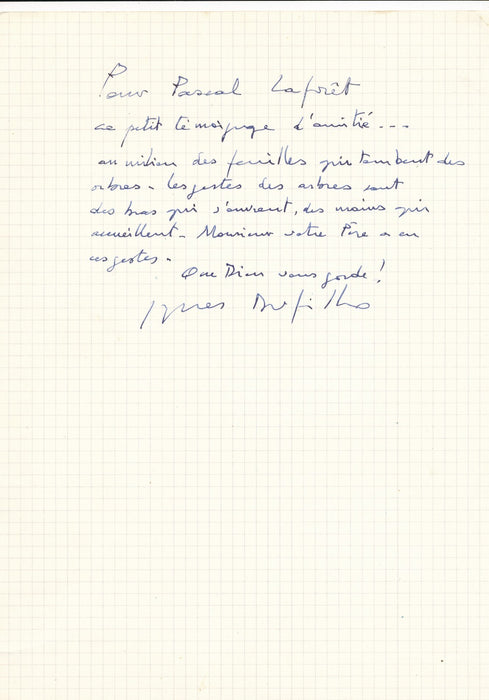 Pour Pascal Laforêt
ce petit témoignage d'amitié...
au milieu des feuilles qui tombent des
arbres - les gestes des arbres sont
des bras qui s'ouvrent, des mains qui
accueillent - Monsieur votre Père a eu
ces gestes -
Que Dieu vous garde !
Jacques Dufilho